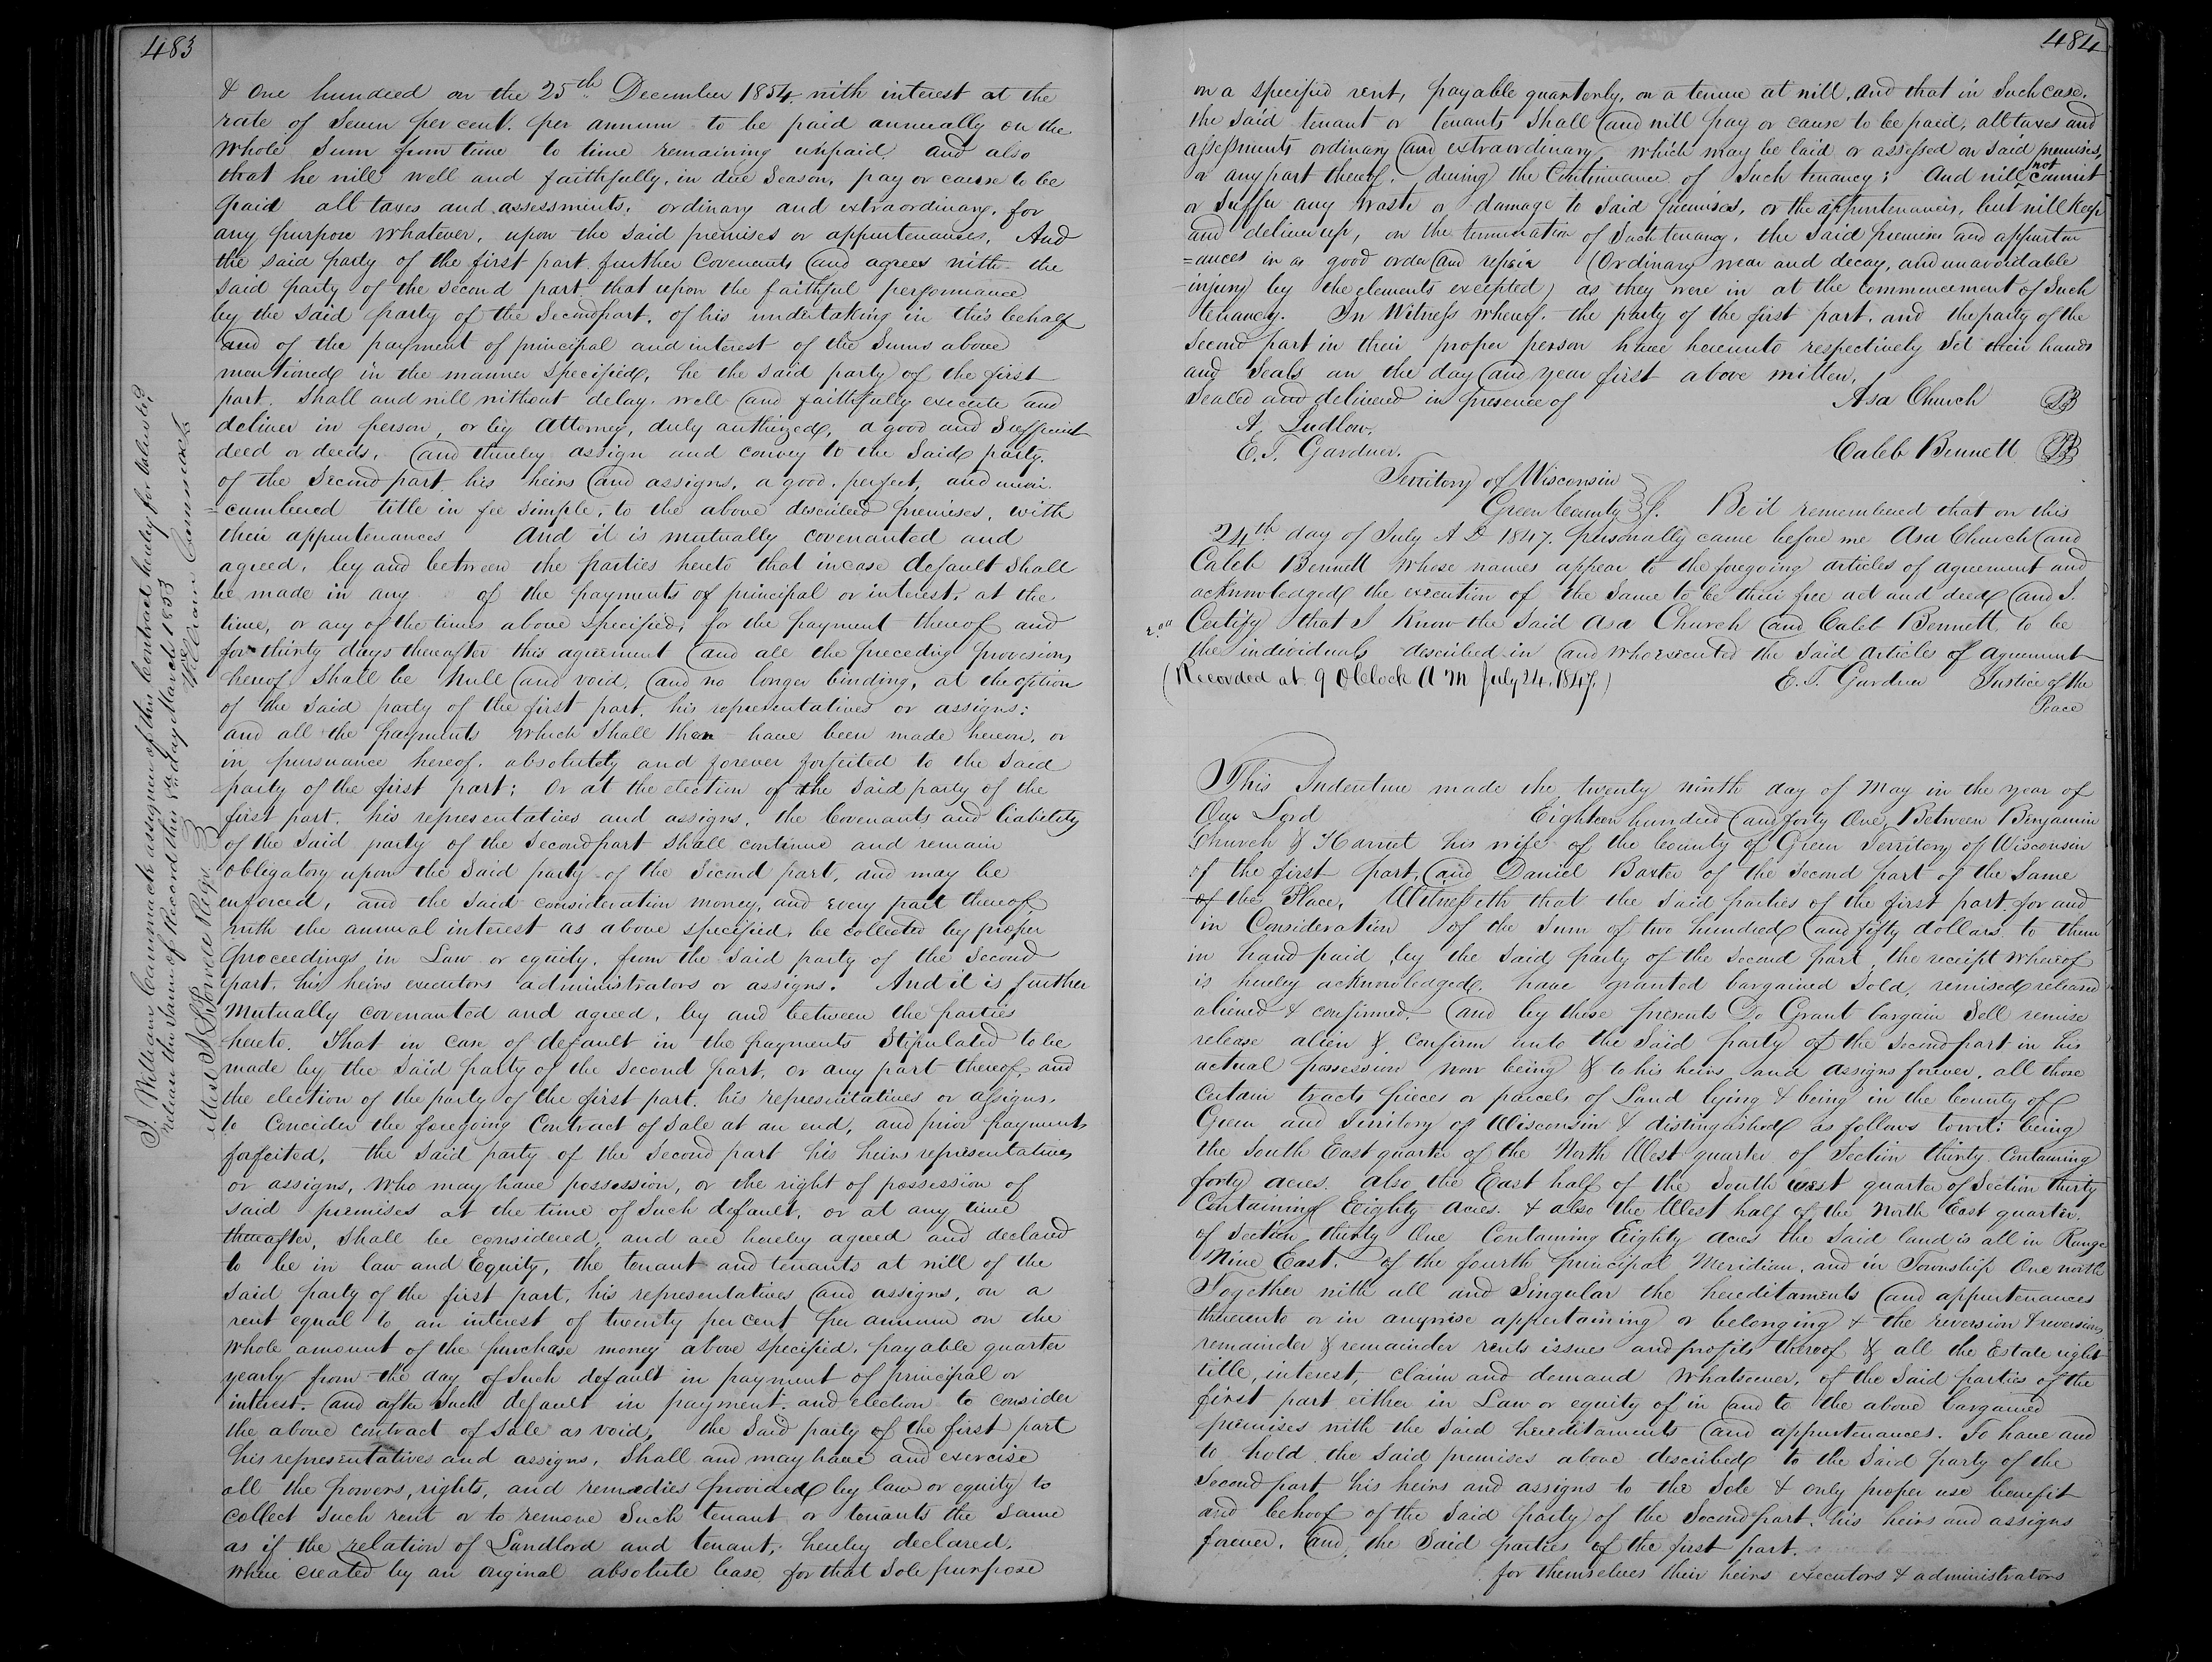 483
& One hundred on the 25th December 1854. with interest at the
rate of Seven per cent. per annum to be paid annually on the
whole Sum from time to time remaining unpaid. and also
that he will well and faithfully, in due Season, pay or cause to be
paid all taxes and assessments, ordinary and extraordinary, for
any purpose whatever, upon the said premises or appurtenances. And
the said party of the first part further Covenants and agrees with the
said party of the second part that upon the faithful performance
by the said party of the Second part, of his undertaking in this behalf
and of the payment of principal and interest of the Sums above
mentioned in the manner specified, he the said party of the first
part. Shall and will without delay. well and faithfully execute and
deliver in person, or by Attorney, duly authized, a good and Sufficient
deed or deeds, and thereby assign and convey to the Said party.
of the Second part his heirs and assigns, a good, perfect, and unin
=cumbered title in fee simple, to the above described premises, with
their appurtenances And it is mutually covenanted and
agreed, by and between the parties hereto that incase default Shall
be made in any of the payments of principal or interest, at the
time, or any of the times above specified, for the payment thereof and
for thirty days thereafter this agreement and all the preceding provisions
hereof Shall be Null and void, and no longer binding, at the option
of the Said party of the first part, his representatives or assigns;
and all the payments which Shall then have been made hereon, or
in pursuance hereof, absolutely and forever forfeited to the Said
party of the first part; Or at the election of the Said party of the
first part, his representatives and assigns, the Covenants and liability
of the Said party of the Second part Shall continue and remain
obligatory upon the Said party of the Second part, and may be
enforced, and the said consideration money, and every part thereof
with the annual interest as above specified, be collected by proper
proceedings in Law or equity, from the said party of the Second
part, his heirs executors administrators or assigns. And it is further
Mutually covenanted and agreed, by and between the parties
hereto. That in case of default in the payments Stipulated to be
made by the Said party of the Second part, or any part thereof, and
the election of the party of the first part. his representatives or assigns.
to Concider the foregoing Contract of Sale at an end, and prior payments
forfeited, the Said party of the Second part his heirs representatives
or assigns, who may have possession, or the right of possession of
said premises at the time of Such default, or at any time
thereafter, Shall be considered, and are hereby agreed and declared
to be in law and Equity, the tenant and tenants at will of the
Said party of the first part, his representatives and assigns, on a
rent equal to an interest of twenty per cent per annum on the
whole amount of the purchase money above specified, payable quarter
yearly from the day of Such default in payment of principal or
interest. and after Such default in payment, and election to consider
the above contract of Sale as void, the Said party of the first part
his representatives and assigns, Shall and may have and exercise
all the powers, rights, and remedies provided by law or equity to
collect Such rent or to remove Such tenant or tenants the Same
as if the relation of Landlord and tenant, hereby declared,
were created by an original absolute lease for that Sole purpose
I William Cammack assignee of this Contract hereby for value do
release the same of Record this day March 1853
William Cammack
484
on a specified rent, payable quarterly, on a tenure at will. And that in Such case.
the Said tenant or tenants Shall and will pay or cause to be paid, all taxes and
assessments ordinary and extraordinary, which may be laid or assessed on Said premises,
or any part thereof. during the Continuance of Such tenancy; And will not commit
or Suffer any waste or damage to Said premises, or the appurtenances, but will keep
and deliver up, on the termination of Such tenancy, the Said premises and appurten
=ances in as good order and repair (Ordinary wear and decay, and unavoidable
injury by the elements excepted) as they were in at the commencement of Such
tenancy. In Witness whereof. the party of the first part. and the party of the
Second part in their proper person have hereunto respectively Set their hands
and Seals on the day and year first above written.
Sealed and delivered in presence of Asa Church
A. Ludlow.
E. T. Gardner. Caleb Bennett
Territory of Wisconsin
Green County } S. Be it remembered that on this
24th day of July A D 1847. personally came before me Asa Church and
Caleb Bennett whose names appear to the foregoing articles of agreement and
acknowledged the execution of the Same to be their free act and deed and I.
Certify that I Know the Said Asa Church and Caleb Bennett, to be
the individuals described in and who executed the Said Articles of Agreement
(Recorded at 9 O'Clock A M July 24, 1847.) E. T. Gardner Justice of the
Peace
This Indenture made the twenty ninth day of May in the year of
Our Lord Eighteen hundred and forty One, Between Benjamin
Church & Harriet his wife of the County of Green Territory of Wisconsin
of the first part, and Daniel Baxter of the Second part of the Same
of the Place. Witnesseth that the Said parties of the first part for and
in Consideration of the Sum of two hundred and fifty dollars to them
in hand paid by the Said party of the Second part the receipt whereof
is hereby acknowledged. have granted bargained Sold, remised released
aliened & confirmed. and by these presents Do Grant bargain Sell remise
release alien & confirm unto the Said party of the Second part in his
actual possession now being & to his heirs and assigns forever. all those
Certain tracts pieces or parcels of Land lying & being in the County of
Green and Territory of Wisconsin & distinguished as follows towit: being
the South East quarter of the North West quarter of Section thirty Containing
forty acres. also the East half of the South west quarter of Section thirty
Containing Eighty Acres. & also the West half of the North East quarter.
of Section thirty One Containing Eighty Acres the Said land is all in Range
Nine East. of the fourth principal Meridian. and in Township One north
Together with all and Singular the hereditaments and appurtenances
thereunto or in anywise appertaining or belonging & the reversion & reversions
remainder & remainder rents issues and profits thereof & all the Estate right
title, interest, claim and demand whatsoever, of the Said parties of the
first part either in Law or equity of in and to the above bargained
premises with the Said hereditaments and appurtenances. To have and
to hold the Said premises above described to the Said party of the
Second part his heirs and assigns to the Sole & only proper use benefit
and behoof of the Said party of the Second part, his heirs and assigns
forever. And the Said parties of the first part.
for themselves their heirs executors & administrators